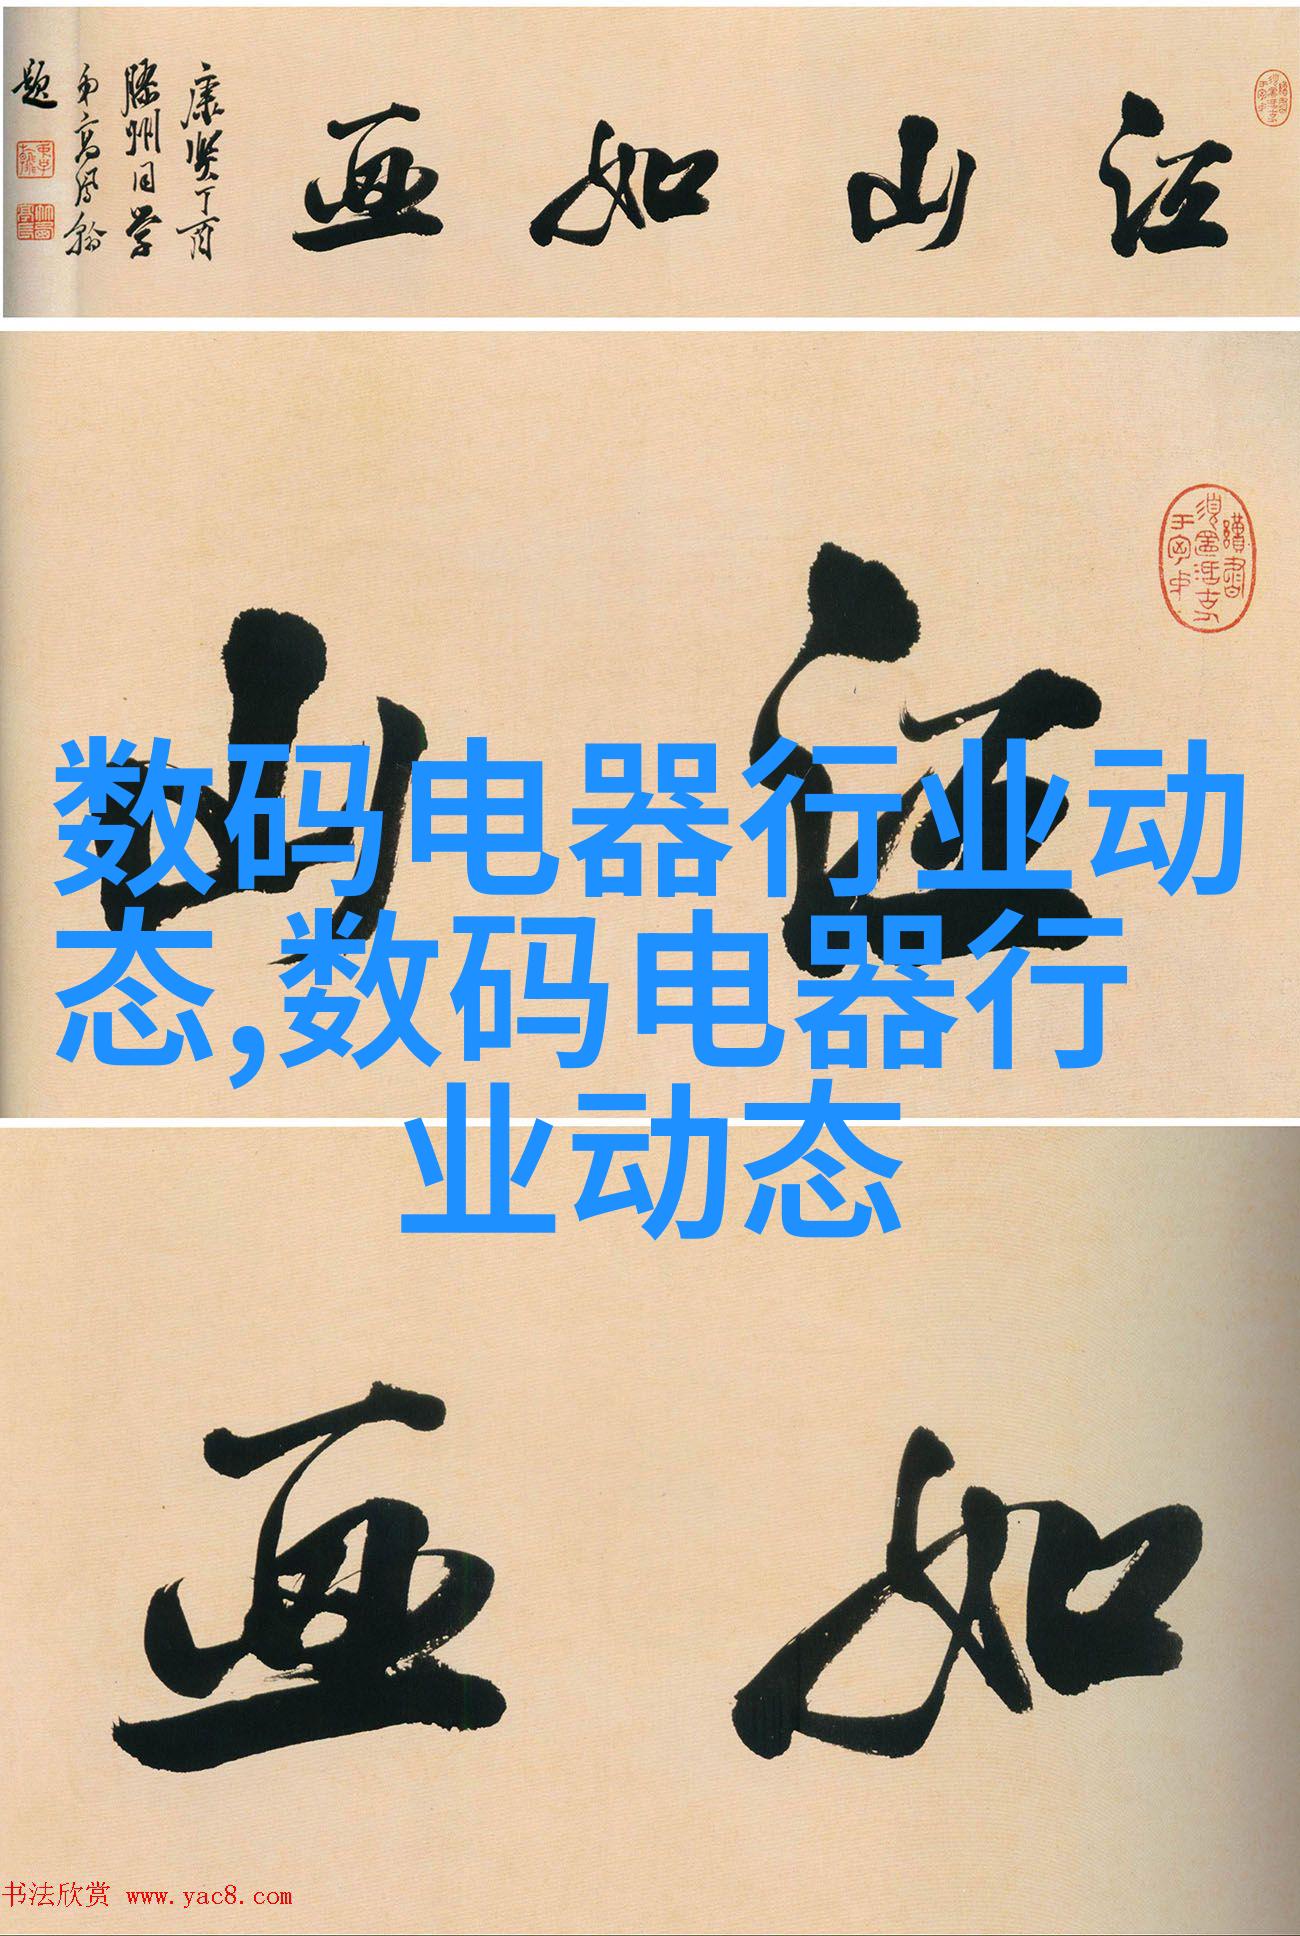 江山如画
康熙丁酉
滕州同学
弟高凤翰
题
江山
数码电器行业动
态,数码电器行
业动态
如画
书法欣赏 www.yac8.com